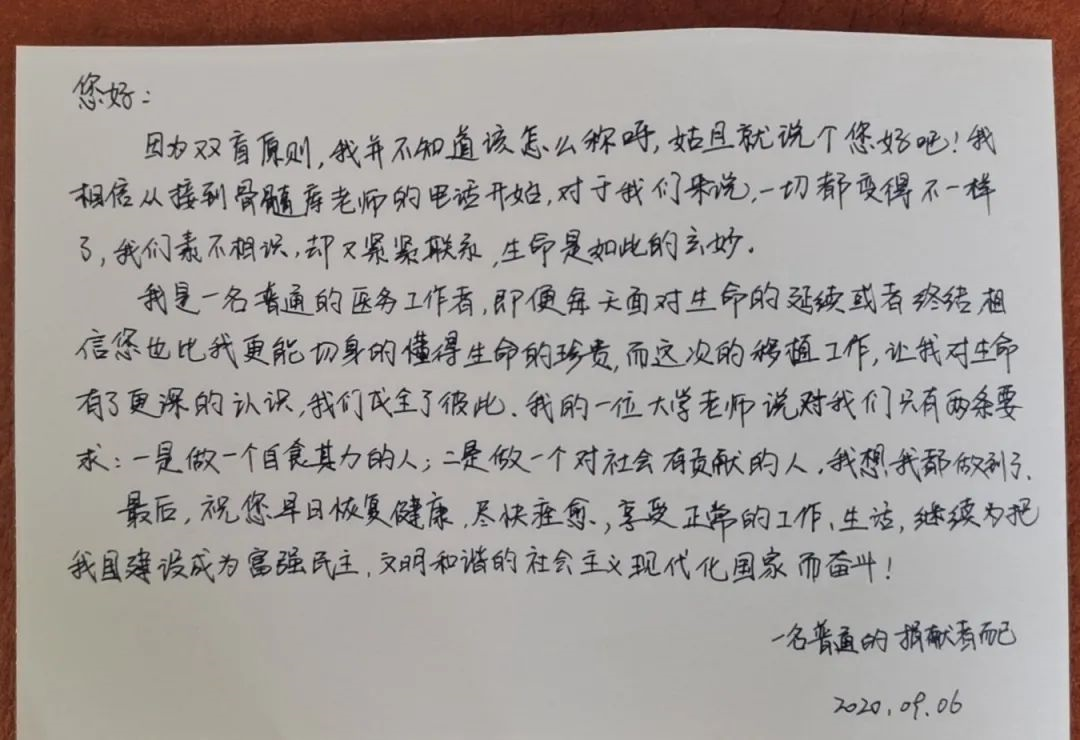 您好：
因为双盲原则，我并不知道该怎么称呼，姑且就说个您好吧！我
相信从接到骨髓库老师的电话开始，对于我们来说，一切都变得不一样
了，我们素不相识，却又紧紧联系，生命是如此的玄妙.
我是一名普通的医务工作者，即便每天面对生命的延续或者终结，相
信您也比我更能切身的懂得生命的珍贵，而这次的移植工作，让我对生命
有了更深的认识，我们成全了彼此、我的一位大学老师说对我们只有两条要
求：一是做一个自食其力的人；二是做一个对社会有贡献的人，我想我都做到了、
最后，祝您早日恢复健康，尽快痊愈，享受正常的工作、生活，继续为把
我国建设成为富强民主，文明和谐的社会主义现代化国家而奋斗！
一名普通的捐献者而已
2020.09.06